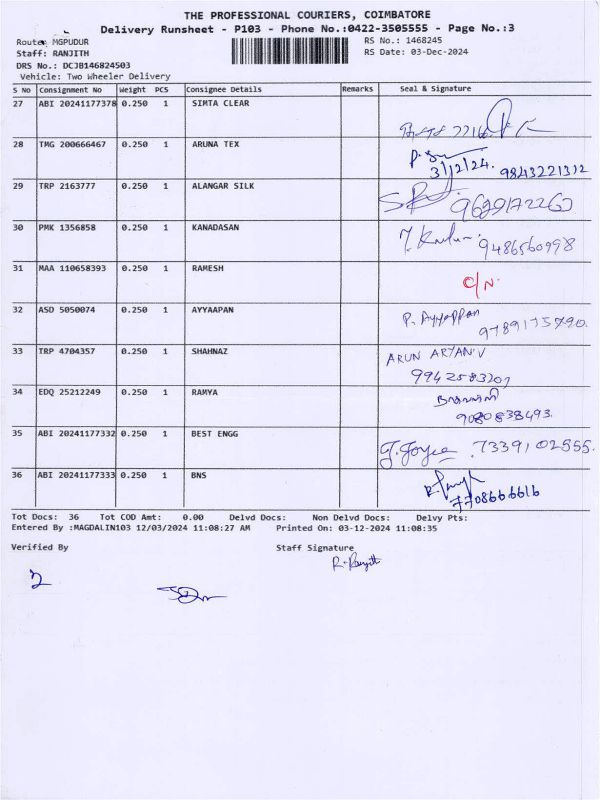 THE PROFESSIONAL COURIERS, COIMBATORE
Delivery Runsheet - P103 - Phone No.:0422-3505555 - Page No.:3
Route: MGPUDUR
RS No.: 1468245
Staff: RANJITH
RS Date: 03-Dec-2024
DRS No.: DCJB146824503
Vehicle: Two Wheeler Delivery
S No Consignment No Weight PCS Consignee Details Remarks Seal & Signature
27 ABI 20241177378 0.250 1 SIMTA CLEAR
28 TMG 200666467 0.250 1 ARUNA TEX
3/12/24. 9843221312
29 TRP 2163777 0.250 1 ALANGAR SILK
30 PMK 1356858 0.250 1 KANADASAN
9486560998
31 MAA 110658393 0.250 1 RAMESH
C/N.
32 ASD 5050074 0.250 1 AYYAAPAN
P. Ayyappan
9789175790.
33 TRP 4704357 0.250 1 SHAHNAZ
ARUN ARYAN.V
9942583207
34 EDQ 25212249 0.250 1 RAMYA
9080838493.
35 ABI 20241177332 0.250 1 BEST ENGG
J. Joyce .7339102555.
36 ABI 20241177333 0.250 1 BNS
7708666616
Tot Docs: 36 Tot COD Amt: 0.00 Delvd Docs: Non Delvd Docs: Delvy Pts:
Entered By :MAGDALIN103 12/03/2024 11:08:27 AM Printed On: 03-12-2024 11:08:35
Verified By
Staff Signature
R. Ranjith
2